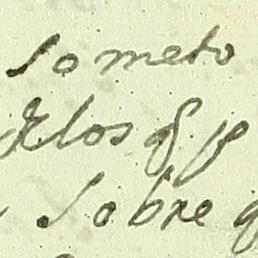 someto
Elos q. pe
sobre q